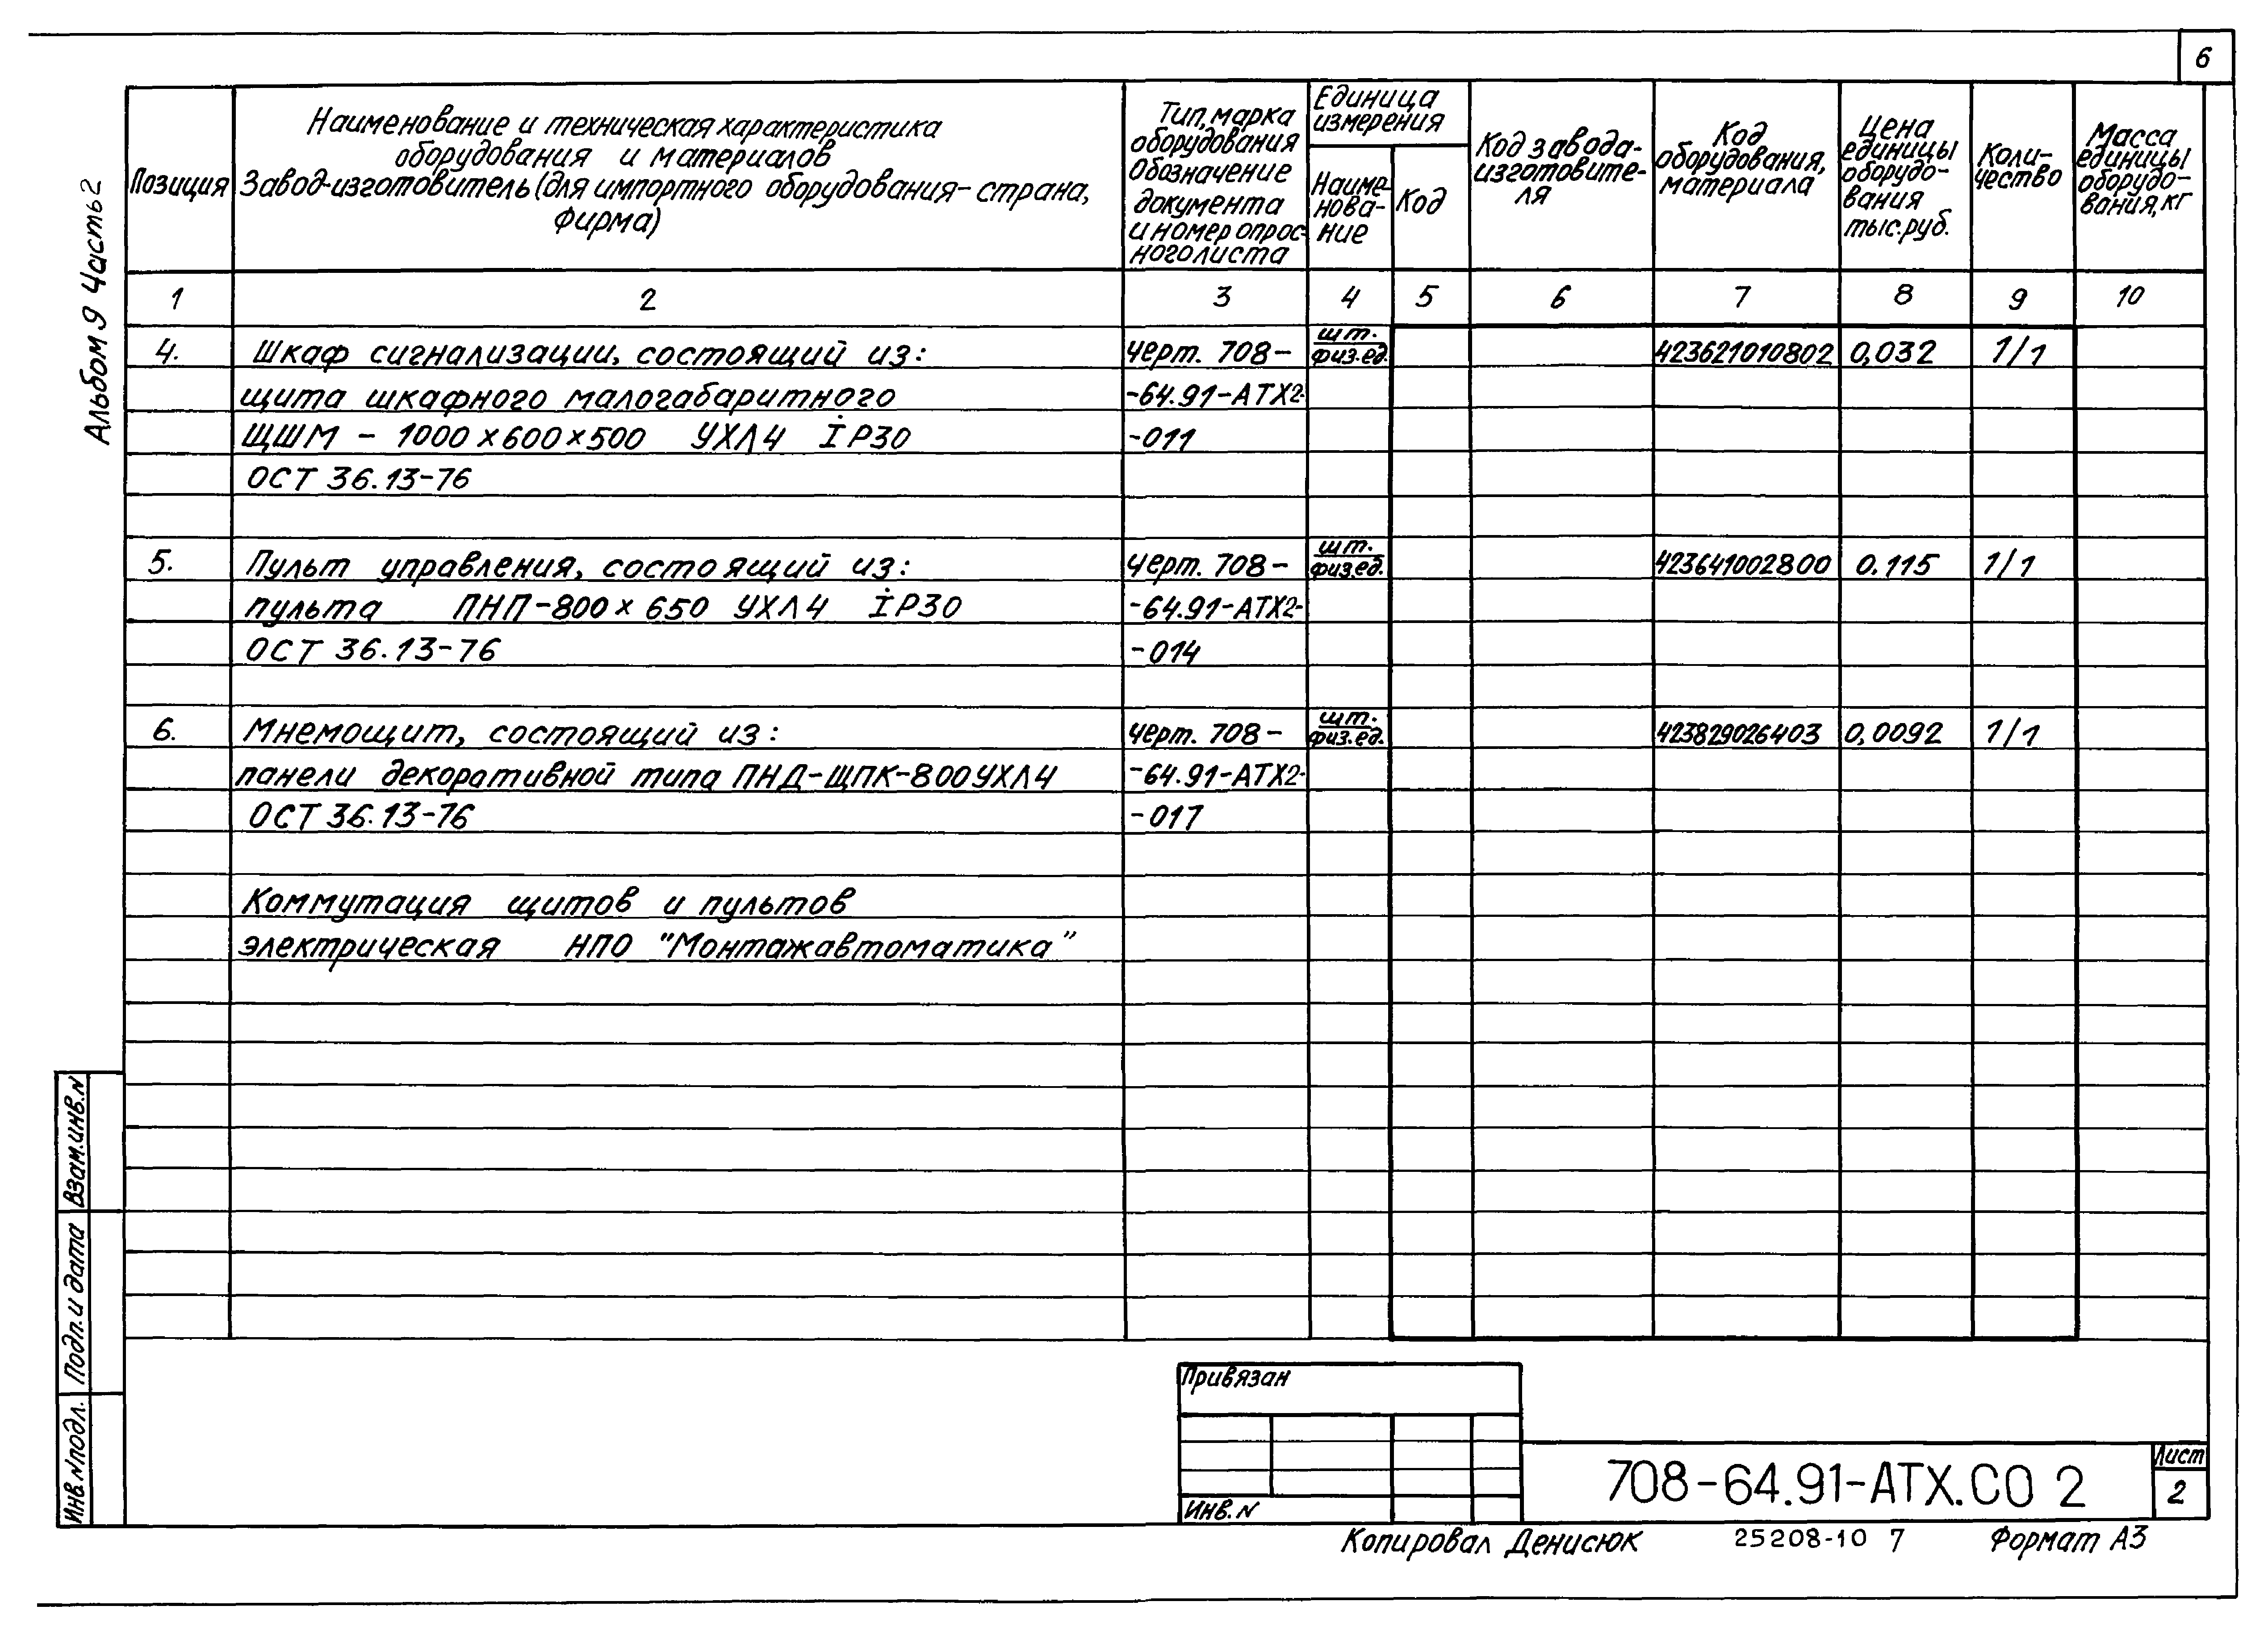 6
Альбом 9 Часть 2
Позиция
Наименование и техническая характеристика
оборудования и материалов
Завод-изготовитель (для импортного оборудования- страна,
фирма)
Тип, марка
оборудования
Обозначение
документа
и номер опрос-
ного листа
Единица
измерения
Наиме-
нова-
ние
Код
Код завода-
изготовите-
ля
Код
оборудования,
материала
Цена
единицы
оборудо-
вания
тыс.руб.
Коли-
чество
Масса
единицы
оборудо-
вания, кг
1 2 3 4 5 6 7 8 9 10
4. Шкаф сигнализации, состоящий из: Черт. 708- шт. физ.ед. 423621010802 0,032 1/1
щита шкафного малогабаритного -64.91-АТХ2-
ЩШМ - 1000х600х500 УХЛ4 IР30 -011
ОСТ 36.13-76
5. Пульт управления, состоящий из: Черт. 708- шт. физ.ед. 423641002800 0.115 1/1
пульта ПНП-800х650 УХЛ4 IР30 -64.91-АТХ2-
ОСТ 36.13-76 -014
6. Мнемощит, состоящий из: Черт. 708- шт. физ.ед. 423829026403 0,0092 1/1
панели декоративной типа ПНД-ЩПК-800УХЛ4 -64.91-АТХ2-
ОСТ 36.13-76 -017
Коммутация щитов и пультов
электрическая НПО "Монтажавтоматика"
Взам.инв.N
Подп. и дата
Инв.N подл.
Привязан
Инв. N
708-64.91-АТХ.СО 2
Лист
2
Копировал Денисюк 25208-10 7 Формат А3